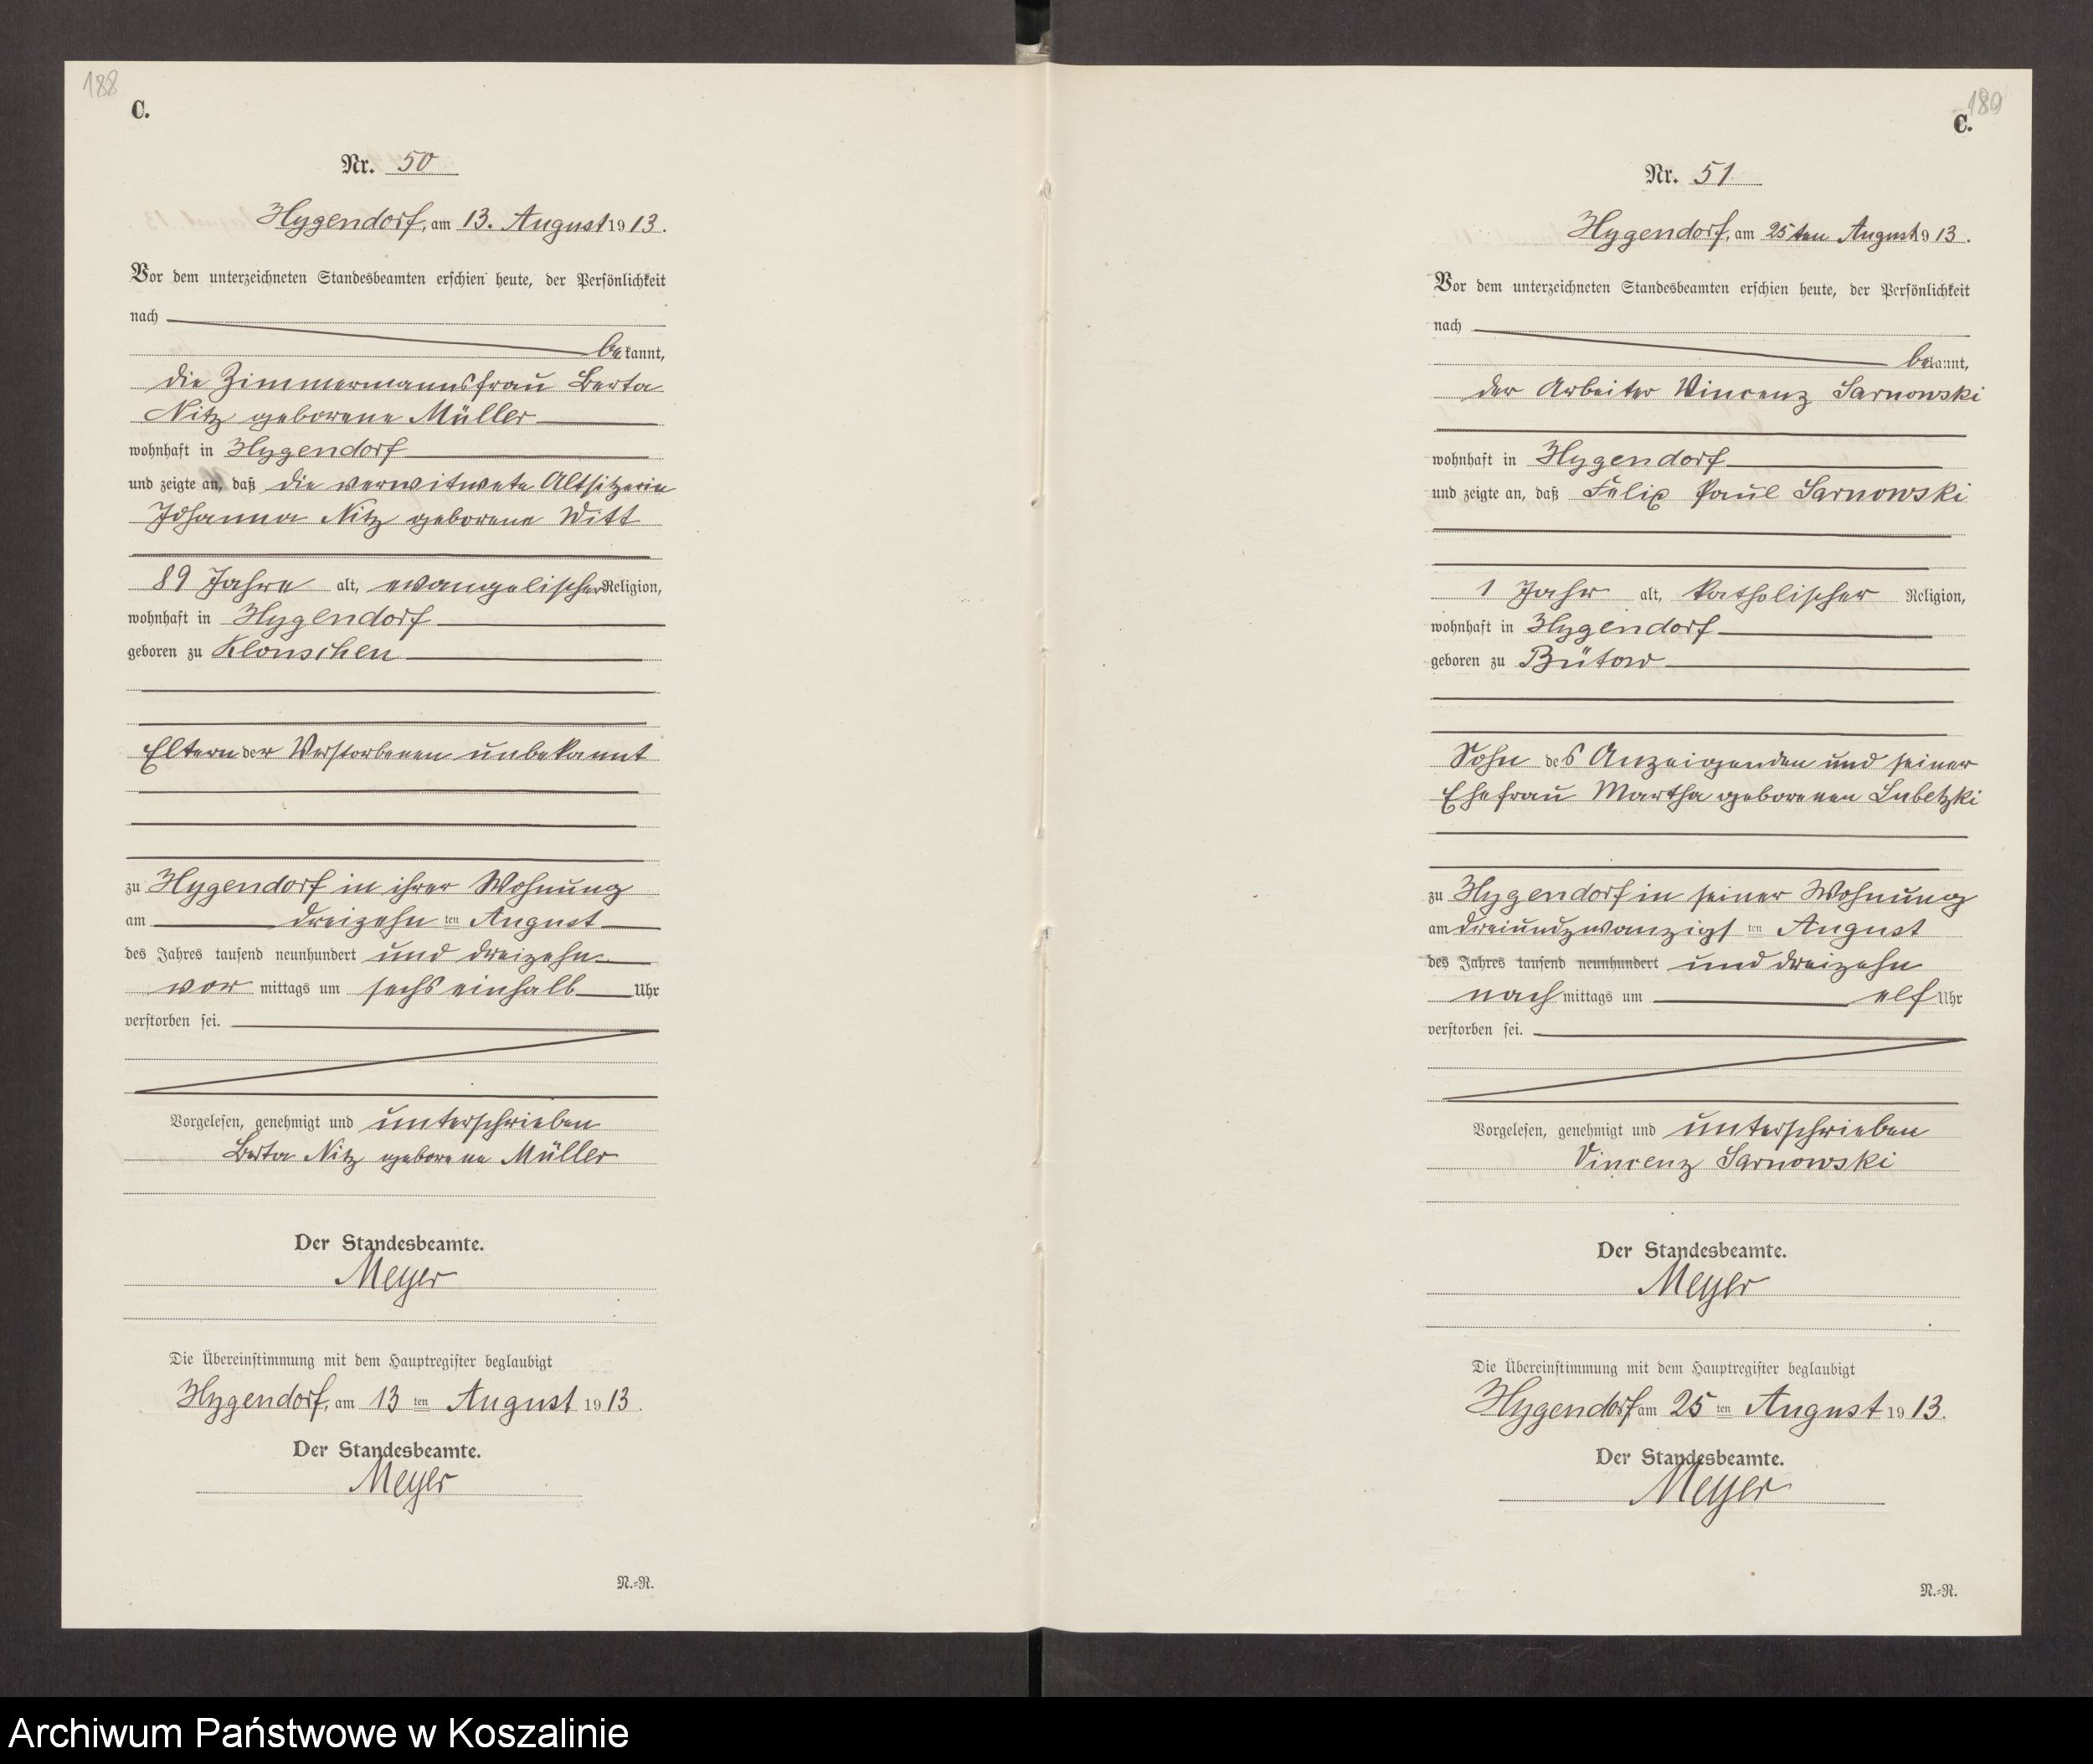 188
C.
Nr. 50
Hygendorf, am 13. August 1913.
Vor dem unterzeichneten Standesbeamten erschien heute, der Persönlichkeit
nach
bekannt,
die Zimmermannsfrau Berta
Nitz geborene Müller
wohnhaft in Hygendorf
und zeigte an, daß die verwitwete Altsitzerin
Johanna Nitz geborene Witt
89 Jahre alt, evangelischer Religion,
wohnhaft in Hygendorf
geboren zu Klonschen
Eltern der Verstorbenen unbekannt
zu Hygendorf in ihrer Wohnung
am dreizehn ten August
des Jahres tausend neunhundert und dreizehn
vor mittags um sechs einhalb Uhr
verstorben sei.
Vorgelesen, genehmigt und unterschrieben
Berta Nitz geborene Müller
Der Standesbeamte.
Meyer
Die Übereinstimmung mit dem Hauptregister beglaubigt
Hygendorf, am 13 ten August 1913.
Der Standesbeamte.
Meyer
N.=R.
189
C.
Nr. 51
Hygendorf, am 25ten August 1913.
Vor dem unterzeichneten Standesbeamten erschien heute, der Persönlichkeit
nach
bekannt,
der Arbeiter Vincenz Sarnowski
wohnhaft in Hygendorf
und zeigte an, daß Felix Paul Sarnowski
1 Jahr alt, katholischer Religion,
wohnhaft in Hygendorf
geboren zu Bütow
Sohn des Anzeigenden und seiner
Ehefrau Martha geborenen Lubetzki
zu Hygendorf in seiner Wohnung
am dreiundzwanzigsten August
des Jahres tausend neunhundert und dreizehn
nach mittags um elf Uhr
verstorben sei.
Vorgelesen, genehmigt und unterschrieben
Vincenz Sarnowski
Der Standesbeamte.
Meyer
Die Übereinstimmung mit dem Hauptregister beglaubigt
Hygendorf, am 25 ten August 1913.
Der Standesbeamte.
Meyer
N.=R.
Archiwum Państwowe w Koszalinie